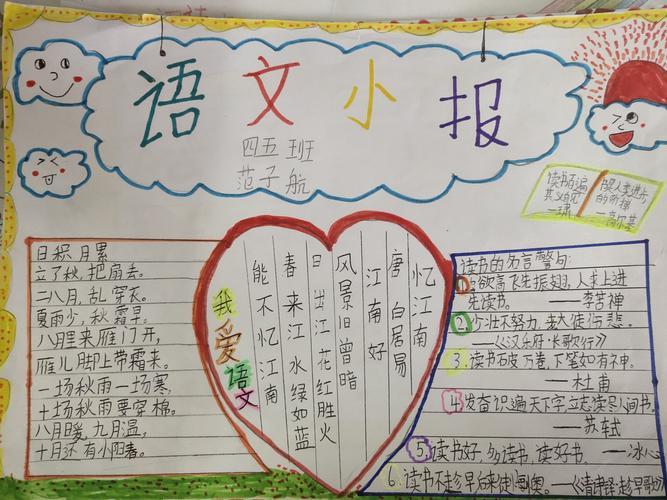 语文小报
四五班
范子航
读书百遍
其义自见
日积月累
立了秋,把扇丢。
二八月,乱穿衣。
夏雨少,秋霜早。
八月里来雁门开,
雁儿脚上带霜来。
一场秋雨一场寒,
十场秋雨要穿棉。
八月暖,九月温,
十月还有小阳春。
我爱语文
忆江南
唐 白居易
江南好
风景旧曾暗
日出江花红胜火
春来江水绿如蓝
能不忆江南
读书的名言警句:
1.鸟欲高飞先振翅,人求上进
先读书。——李苦禅
2.少壮不努力,老大徒伤悲。
——《汉乐府·长歌行》
3.读书破万卷,下笔如有神。
——杜甫
4.发奋识遍天下字,立志读尽人间书。
——苏轼
5.读书好,多读书,读好书。——冰心
6.读书不趁早